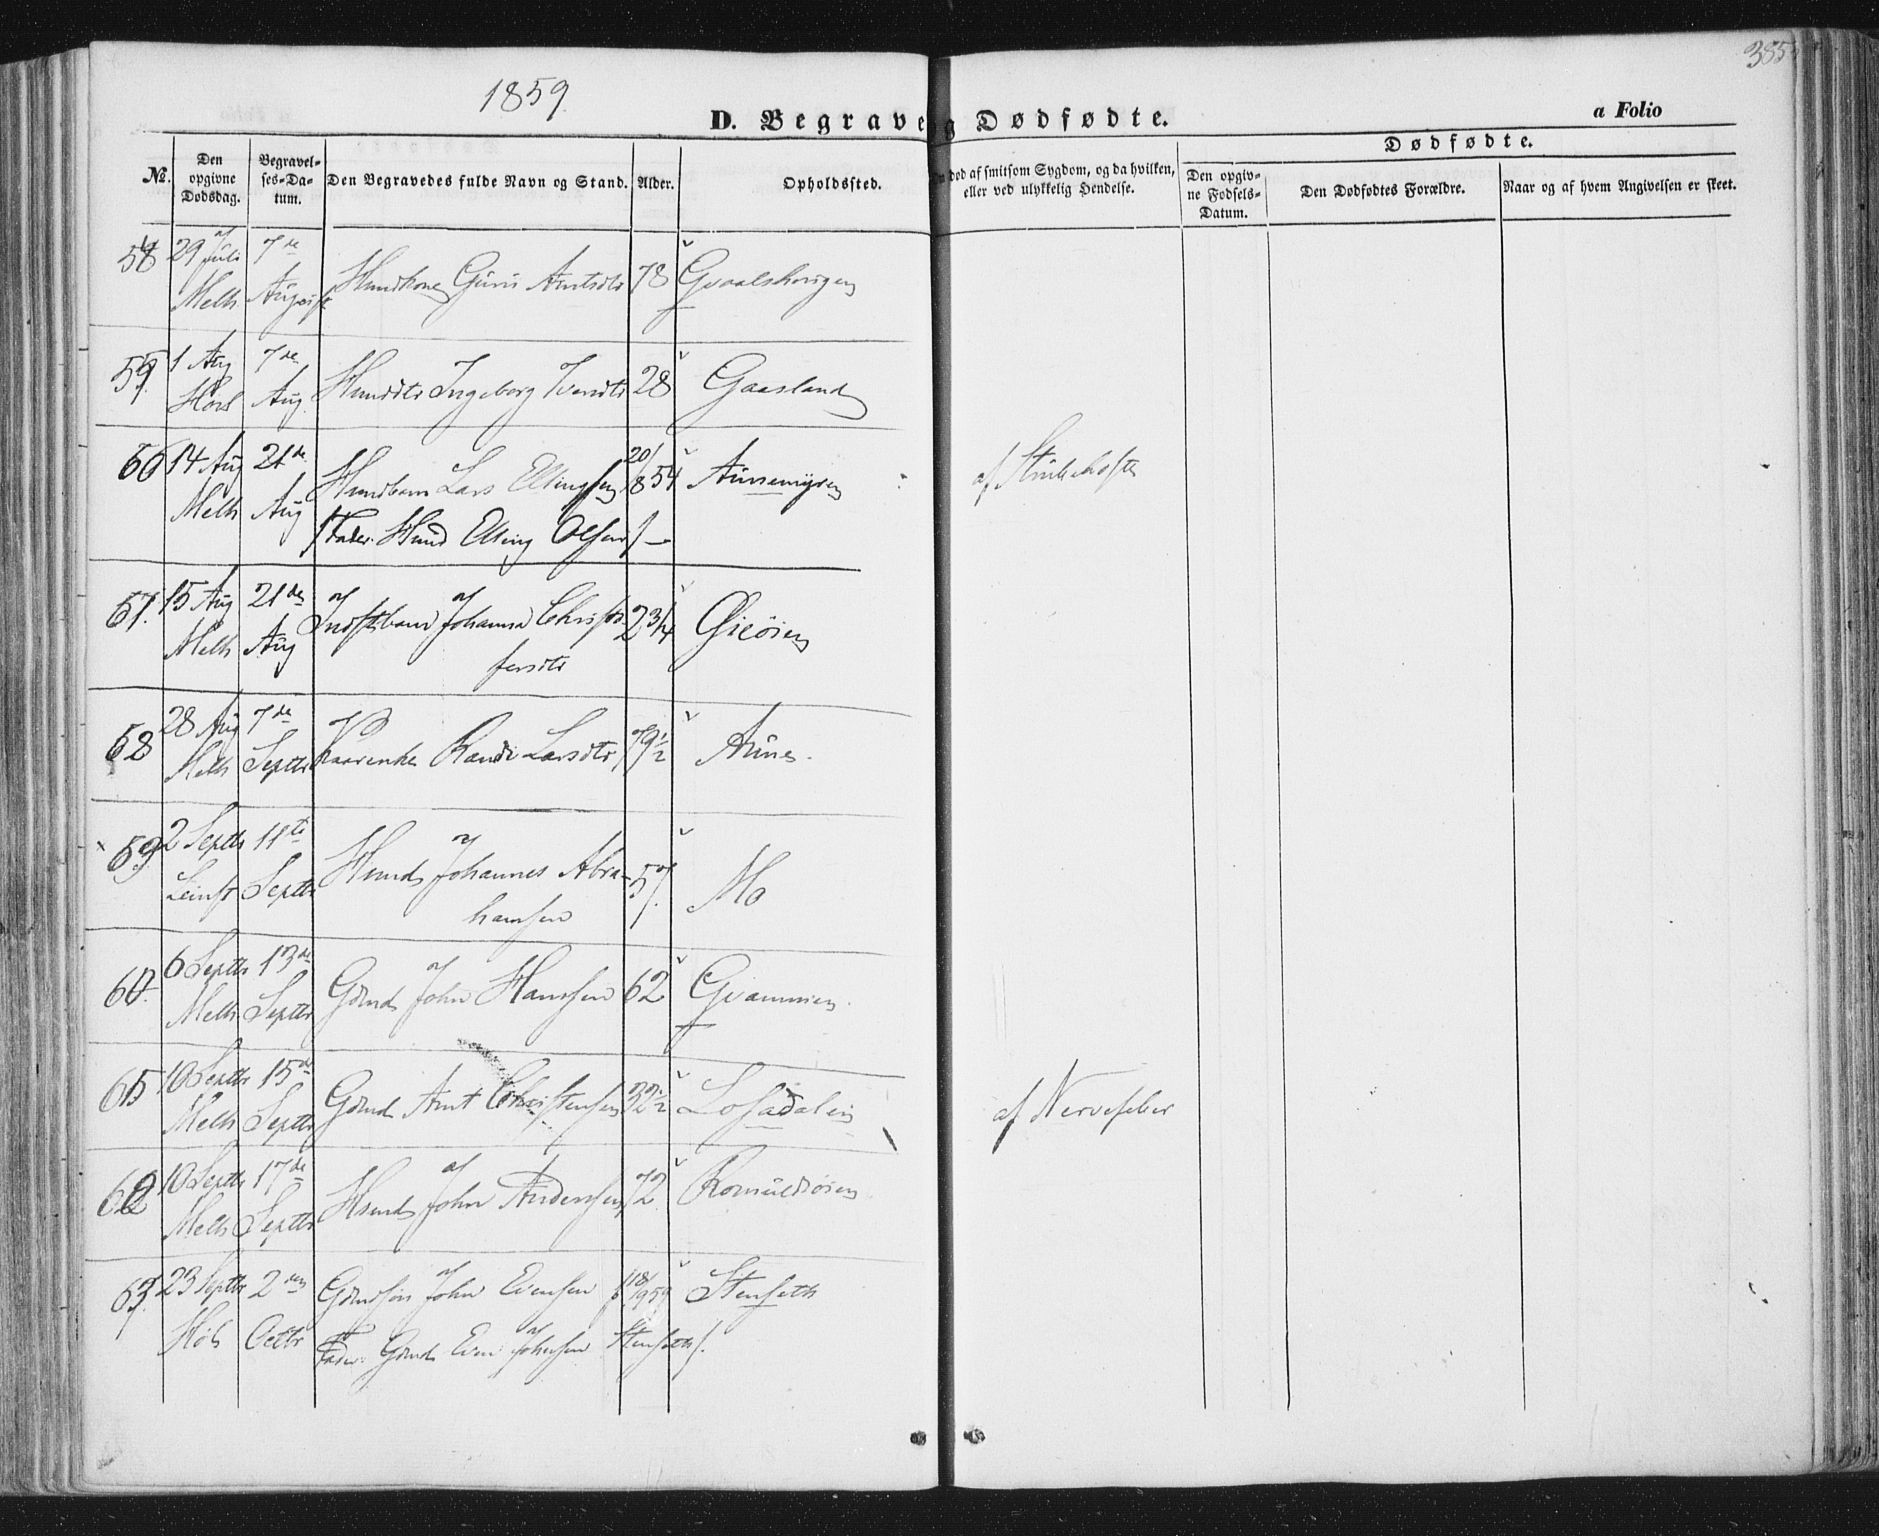 385
1859.
D. Begrave g Dødfødte.
a Folio
Dødfødte.
No.
Den opgivne Dødsdag.
Begravelses-Datum.
Den Begravedes fulde Navn og Stand.
Alder.
Opholdssted.
død af smitsom Sygdom, og da hvilken, eller ved ulykkelig Hendelse.
Den opgivne Fødsels-Datum.
Den Dødfødtes Forældre.
Naar og af hvem Angivelsen er skeet.
58 29 Juli 7de
Melh August Huuskone Guru Arntsdtr 78 Gvaalshougen
59. 1 Aug 7de
Høl Aug. Ingeborg Iversdtr 28 Gaasland
14 Aug 21de 20/
Melh Aug Lars Ellingsen 8 54 Aunemyren af Strubehoste
/Fader: Huusmd Elling Olsen/-
15 Aug 21de
Melh Aug Johanna Christof 2 3/4 Gieøien
fersdtr
28 Aug 7de
Melh Septbr Randi Larsdtr 79 1/2 Aune.
2 Septbr 11te
Leinst Septbr Johannes Abra- 57. Mo
hamsen
60. 6 Septbr 13de
Melh Septbr Gbmd John Hansen 62 Gvammen.
10 Septbr 15de
Melh Septbr Gbmd Arnt Christensen 32 1/2 Losadalen af Nervefeber
62 10 Septbr 17de
Melh Septbr John Andersen 72
63. 23 Septbr 2den
Høl Octbr John Evensen Stenseth
Fader: Gbmd Even Johnsen Stenseth/.